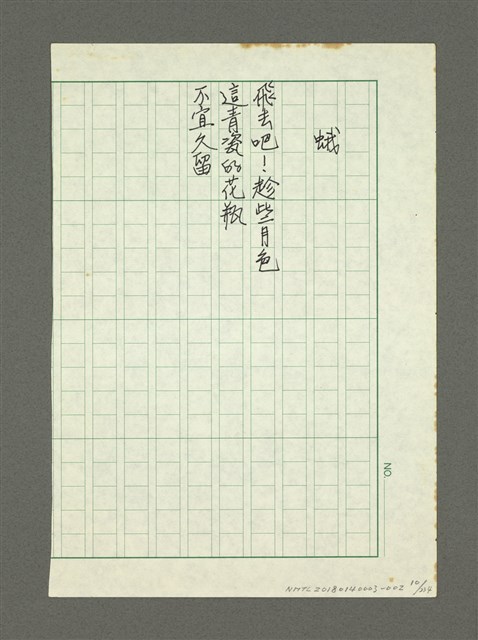 蛾
飛去吧！趁些月色
這青瓷的花瓶
不宜久留
NO.
NMTL20180140003-002
10/224